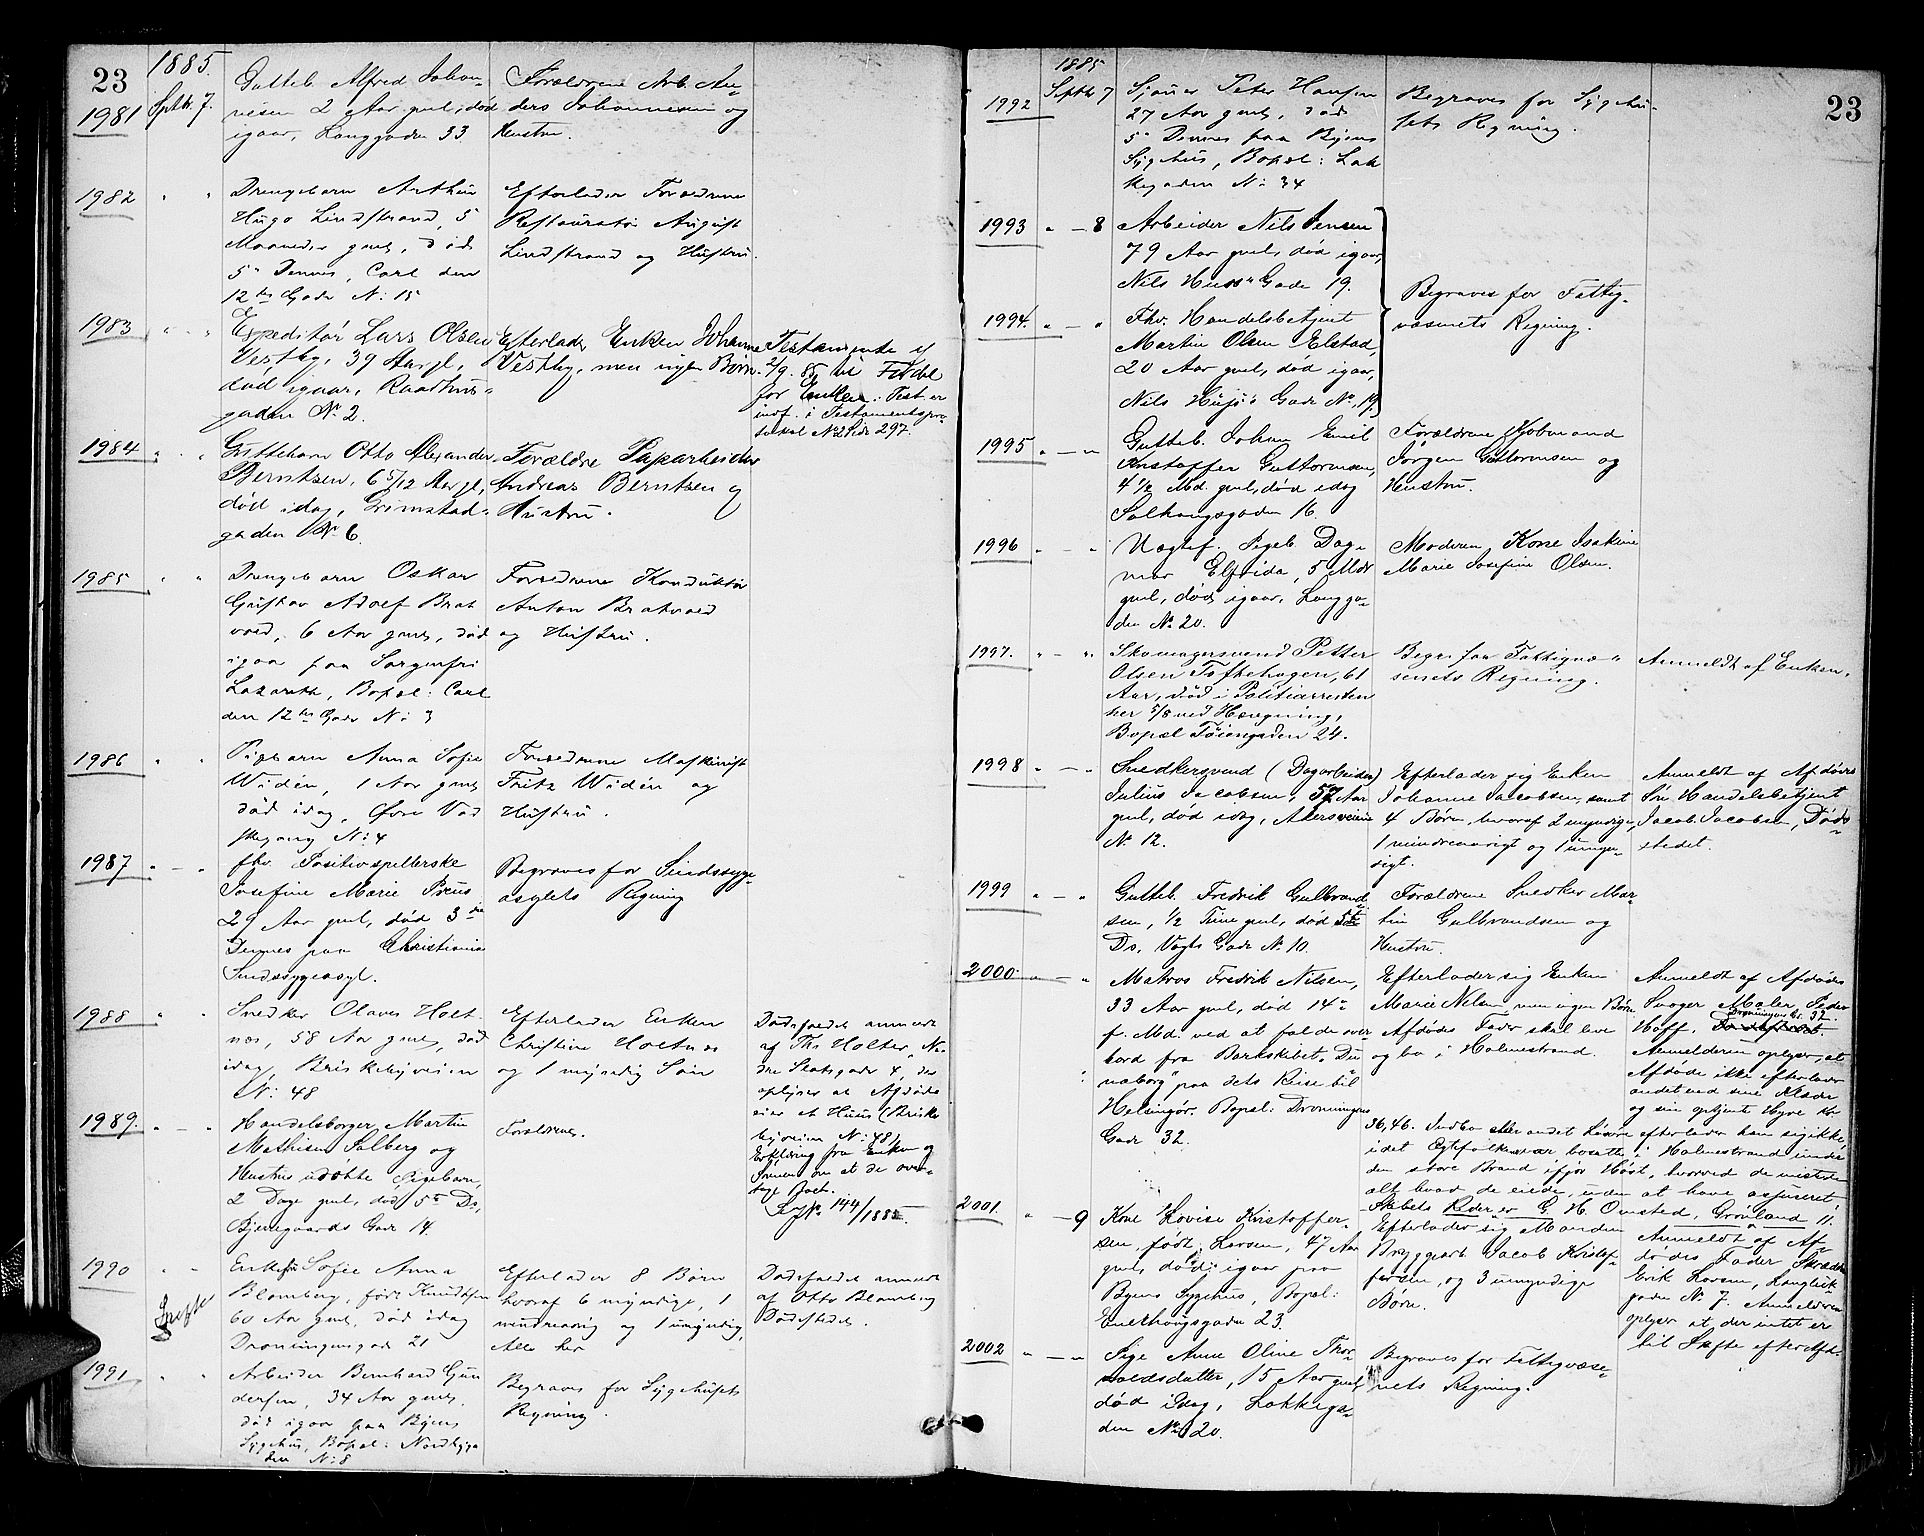 23
1885.
1981
Septbr. 7.
Gutteb. Alfred Johan-
nesen 2 Aar gml, død
igaar, Langgaden 33
Forældrene Arb. An-
ders Johannesen og
Hustru.
1982
" "
Drengebarn Arthur
Hugo Lindstrand, 5
Maaneder gml, død
5te Dennes, Carl den
12tes Gade N: 15
Efterlader Forældrene
Restauratør August
Lindstrand og Hustru.
1983
" "
Expeditør Lars Olsen
Vestby, 39 Aar gl,
død igaar, Raadhus-
gaden No 2.
Efterlader Enken Johanne
Vestby, men ingen Børn.
Testamente af
2/9. 85 til Fordel
for Enken. Test. er
indf. i Testamentspro-
tokol No 2 Side 297.
1984
" "
Guttebarn Otto Alexander
Berntsen, 6 5/12 Aar gl,
død idag, Grimstad-
gaden No 6.
Forældre Paparbeider
Andreas Berntsen og
Hustru.
1985
" "
Drengebarn Oskar
Gustav Adolf Brat
vold, 6 Aar gml, død
igaar paa Sorgenfri
Lazareth, Bopæl: Carl
den 12tes Gade N: 3
Forældrene Konduktør
Anton Bratvold
og Hustru.
1986
" "
Pigebarn Anna Sofie
Widén, 1 Aar gml
død idag, Øvre Vad
skegang N: 4
Forældrene Maskinist
Fritz Widén og
Hustru.
1987
" — "
fhv. Positivspillerske
Josefine Marie Preus
29 Aar gml, død 3die
Dennes paa Christiania
Sindssygeasyl.
Begraves for Sindssyge-
asylets Regning
1988
" "
Snedker Olaves Holt
næs, 58 Aar gml, død
idag, Briskebyveien
N: 48
Efterlader Enken
Christine Holtnæs
og 1 myndig Søn
Dødsfaldet anmeldt
af Ths Holter, Ne-
dre Slotsgade 4, der
oplyser at Afdøde
eier et Huus (Briske
byveien N: 48)
Erklæring fra Enken og
Sønnen om at de over-
tage Boet.
J.No 144/1885.
1989.
" — "
Handelsborger Martin
Mathisen Solberg og
Hustrus udøbte Pigebarn,
2 Dage gml, død 5te Ds,
Bjerregaards Gade 14.
Forældrene.
1990
" "
Skifte
Enkefru Sofie Anna
Blomberg, født Knudsen
60 Aar gml, død idag
Dronningensgade 21
Efterlader 8 Børn
hvoraf 6 myndige, 1
mindreaarig og 1 umyndig,
Alle her
Dødsfaldet anmeldt
af Otto Blomberg
Dødsstedet.
1991
" "
Arbeider Bernhard Gun
dersen, 34 Aar gml,
død igaar paa Byens
Sygehus, Bopæl: Nordbyga
den N: 8
Begraves for Sygehusets
Regning.
23
1885
1992
Septbr 7
Sjouer Peter Hansen
27 Aar gml, død
5te Dennes paa Byens
Sygehus, Bopæl: Lak
kegaden N: 34
Begraves for Sygehu-
sets Regning.
1993
" — 8
Arbeider Nils Jensen
79 Aar gml, død igaar,
Nils Huus' Gade 19.
1994.
" — "
Fhv. Handelsbetjent
Martin Olsen Elstad,
20 Aar gml, død igaar,
Nils Hujs's Gade No. 19.
Begraves for Fattig-
væsenets Regning.
1995
" — "
Gutteb. Johan Emil
Kristoffer Guttormsen,
4 1/2 Md. gml, død idag
Solhaugsgaden 16.
Forældrene Kjøbmand
Jørgen Guttormsen og
Hustru.
1996
" — "
Uægtef. Pigeb. Dag-
mar Elfrida, 5 Mdr
gml, død igaar, Langga-
den No 20.
Moderen, Kone Isakine
Marie Josefine Olsen.
1997.
" — "
Skomagersvend Petter
Olsen Toftehagen, 61
Aar, død i Politiarresten
her 5/8 ved Hængning,
Bopæl Tøiengaden 24.
Begr. for Fattigvæ-
senets Regning.
Anmeldt af Enken.
1998
" — "
Snedkersvend (Dagarbeider)
Julius Jacobsen, 57 Aar
gml, død idag, Akersveien
No 12.
Efterlader sig Enken
Johanne Jacobsen, samt
4 Børn, hvoraf 2 myndige,
1 mindreaarigt og 1 umyn-
digt.
Anmeldt af Afdødes
Søn Handelsbetjent
Jacob Jacobsen, Døds-
stedet.
1999
" — "
Gutteb. Fredrik Gulbrand-
sen, 1/2 Time gml, død 5te
Ds, Vogts Gade No 10.
Forældrene Snedker Mar-
tin Gulbrandsen og
Hustru.
2000
" — "
Matros Fredrik Nilsen,
33 Aar gml, død 14de
f. Md. ved at falde over-
bord fra Barkskibet "Du
naborg" paa dets Reise til
Helsingør. Bopæl: Dronningens
Gade 32.
Efterlader sig Enken
Marie Nilsen men ingen Børn.
Afdødes Fader skal leve
og bo i Holmestrand.
Anmeldt af Afdødes
Svoger Maler Peder
Hoff, Dronningens G. 32.
Anmelderen oplyser, at
Afdøde ikke efterlader
andet end sine Klæder
og sin optjente Hyre Kr
36,46. Indbo eller andet Løsøre efterlader han sig ikke,
idet Ægtefolkene var bosatte i Holmestrand under
den store Brand ifjor Høst, hvorved de mistede
alt hvad de eiede, uden at have assureret.
Skibets Reder er G. H. Onsted, Grønland 11.
2001.
" — 9
Kone Lovise Kristoffer-
sen, født Larsen, 47 Aar
gml, død igaar paa
Byens Sygehus, Bopæl:
Enerhaugsgaden 23.
Efterlader sig Manden
Bryggearb. Jacob Kristof-
fersen, og 3 umyndige
Børn.
Anmeldt af Af-
dødes Fader Skrædder
Erik Larsen, Langleik
gaden No 7. Anmelderen
oplyser at der intet er
til Skifte efter Afd.
2002
" — "
Pige Anne Oline Thor-
voldsdatter, 15 Aar gml,
død idag, Lakkega-
den No 20.
Begraves for Fattigvæse-
nets Regning.